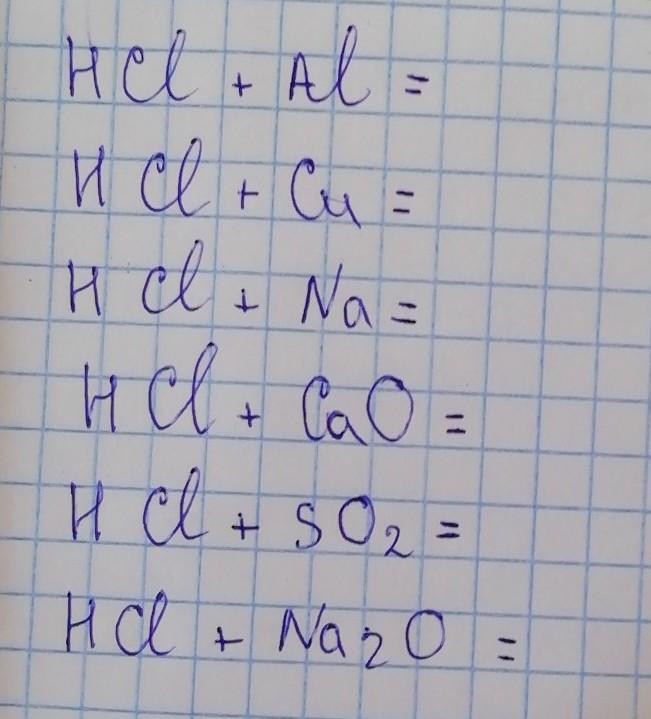 HCl + Al =
HCl + Cu =
HCl + Na =
HCl + CaO =
HCl + SO₂ =
HCl + Na₂O =